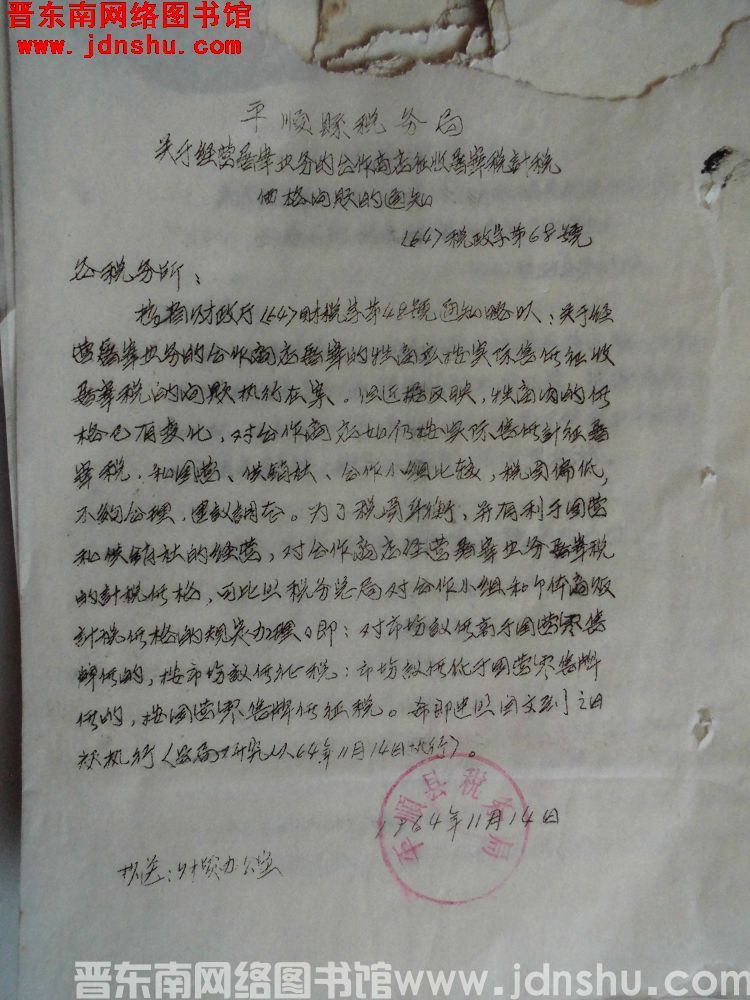 晋东南网络图书馆
www.jdnshu.com
平順縣稅务局
关于经营屠宰业务的合作商店征收屠宰稅計稅
价格问题的通知
(64)稅政字第68號
各稅务所：
按省财政厅(64)财稅字第48號通知略以：关于经
营屠宰业务的合作商店屠宰的牲畜应按实际售价征收
屠宰稅的问题执行在案。但近据反映，牲畜肉的价
格已有变化，对合作商店如仍按实际售价計征屠
宰稅，和国营、供销社、合作小组比较，稅負偏低，
不够合理，建议調整。为了稅負平衡，并有利于国营
和供销社的经营，对合作商店经营屠宰业务屠宰稅
的計稅价格，可比照稅务总局对合作小组和个体商贩
計稅价格的规定办理。即：对市场议价高于国营零售
牌价的，按市场议价征稅；市场议价低于国营零售牌
价的，按国营零售牌价征稅。希即遵照因文到之日
起执行(县局研究从64年11月14日执行)。
1964年11月14日
平顺县税务局
抄送：财贸办公室
晋东南网络图书馆www.jdnshu.com